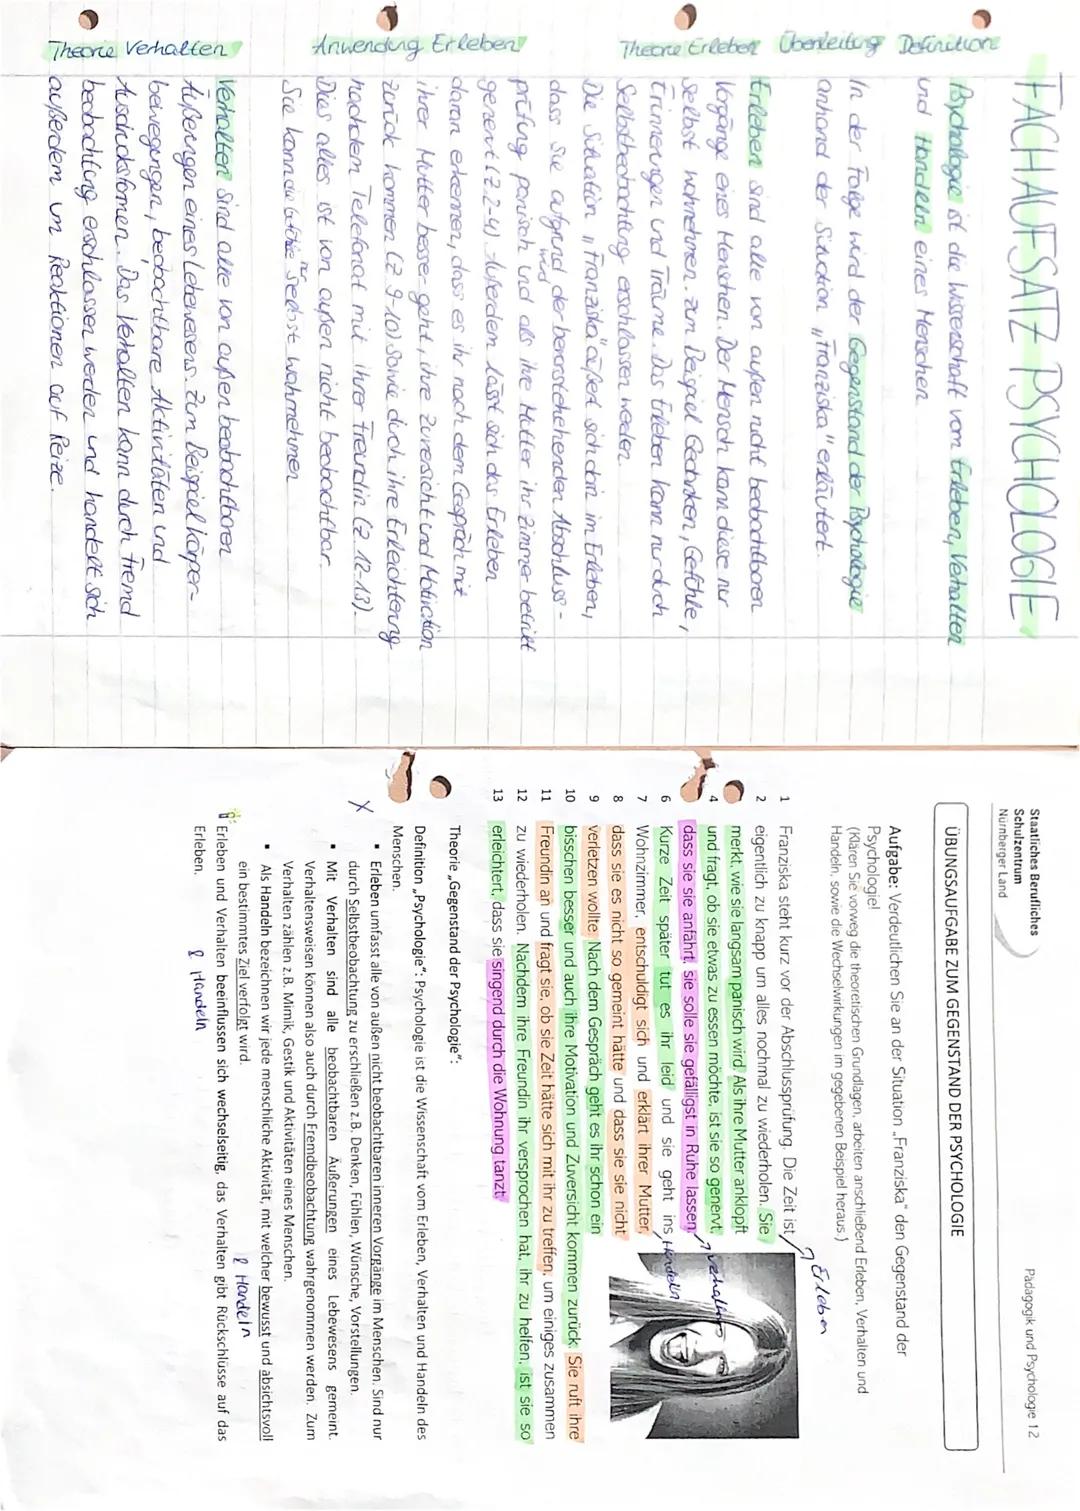 FACHAUFSATZ PSYCHOLOGIE
Definition
Psychologie ist die Wissenschaft vom Erleben, Verhalten
und Handeln eines Menschen.
Überleitung
In der Folge wird der Gegenstand der Psychologie
anhand der Situation „Franziska" erläutert.
Theorie Erleben
Erleben sind alle von außen nicht beobachtbaren
Vorgänge eines Menschen. Der Mensch kann diese nur
selbst wahrnehmen. Zum Beispiel Gedanken, Gefühle,
Erinnerungen und Träume. Das Erleben kann nur durch
Selbstbeobachtung erschlossen werden.
Anwendung Erleben
Die Situation „Franziska" äußert sich darin im Erleben,
dass sie aufgrund der bevorstehenden Abschluss-
prüfung panisch wird und als ihre Mutter ihr Zimmer betritt
generft (Z 2-4). Außerdem lässt sich das Erleben
daran erkennen, dass es ihr nach dem Gespräch mit
ihrer Mutter besser geht, ihre Zuversicht und Motivation
zurück kommen (Z 9-10) sowie durch ihre Erleichterung
nach dem Telefonat mit ihrer Freundin (Z 12-13).
Dies alles ist von außen nicht beobachtbar.
Sie kann die Gefühle nur selbst wahrnehmen
Theorie Verhalten
Verhalten sind alle von außen beobachtbaren
Äußerungen eines Lebewesens. Zum Beispiel körper-
bewegungen, beobachtbare Aktivitäten und
Ausdrucksformen. Das Verhalten kann durch Fremd
beobachtung erschlossen werden und handelt sich
außerdem um Reaktionen auf Reize.
Staatliches Berufliches
Schulzentrum
Nürnberger Land
Pädagogik und Psychologie 12
ÜBUNGSAUFGABE ZUM GEGENSTAND DER PSYCHOLOGIE
Aufgabe: Verdeutlichen Sie an der Situation „Franziska" den Gegenstand der
Psychologie!
(Klären Sie vorweg die theoretischen Grundlagen, arbeiten anschließend Erleben, Verhalten und
Handeln, sowie die Wechselwirkungen im gegebenen Beispiel heraus)
1 Franziska steht kurz vor der Abschlussprüfung. Die Zeit ist
Erleben
2 eigentlich zu knapp um alles nochmal zu wiederholen. Sie
merkt, wie sie langsam panisch wird. Als ihre Mutter anklopft
4 und fragt, ob sie etwas zu essen möchte, ist sie so genervt,
dass sie sie anfährt, sie solle sie gefälligst in Ruhe lassen.
Verhalten
6 Kurze Zeit später tut es ihr leid und sie geht ins
Handeln
7 Wohnzimmer, entschuldigt sich und erklärt ihrer Mutter,
8 dass sie es nicht so gemeint hätte und dass sie sie nicht
9 verletzen wollte. Nach dem Gespräch geht es ihr schon ein
10 bisschen besser und auch ihre Motivation und Zuversicht kommen zurück. Sie ruft ihre
11 Freundin an und fragt sie, ob sie Zeit hätte sich mit ihr zu treffen, um einiges zusammen
12 zu wiederholen. Nachdem ihre Freundin ihr versprochen hat, ihr zu helfen, ist sie so
13 erleichtert, dass sie singend durch die Wohnung tanzt
Theorie „Gegenstand der Psychologie":
Definition „Psychologie": Psychologie ist die Wissenschaft vom Erleben, Verhalten und Handeln des
Menschen.
▪ Erleben umfasst alle von außen nicht beobachtbaren inneren Vorgänge im Menschen. Sind nur
X durch Selbstbeobachtung zu erschließen z.B. Denken, Fühlen, Wünsche, Vorstellungen.
▪ Mit Verhalten sind alle beobachtbaren Äußerungen eines Lebewesens gemeint.
Verhaltensweisen können also auch durch Fremdbeobachtung wahrgenommen werden. Zum
Verhalten zählen z.B. Mimik, Gestik und Aktivitäten eines Menschen.
▪ Als Handeln bezeichnen wir jede menschliche Aktivität, mit welcher bewusst und absichtsvoll
ein bestimmtes Ziel verfolgt wird.
& Handeln
Erleben und Verhalten beeinflussen sich wechselseitig, das Verhalten gibt Rückschlüsse auf das
Erleben.
& Handeln